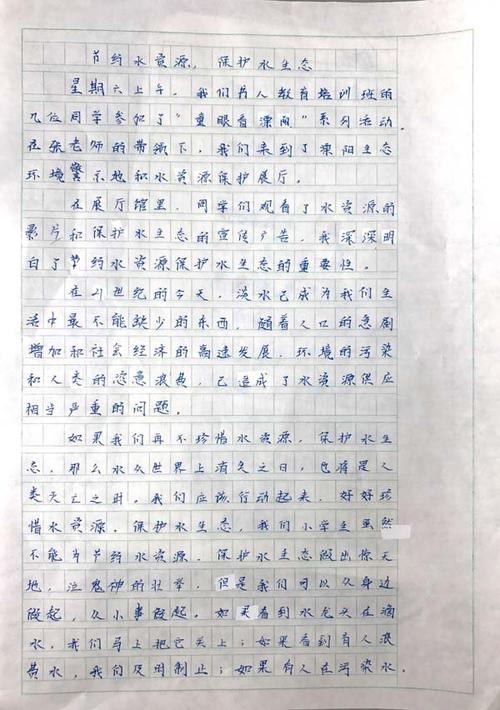 节约水资源，保护水生态
星期六上午，我们书人教育培训班的
几位同学参加了“童眼看溧阳”系列活动，
在张老师的带领下，我们来到了溧阳生态
环境警示地和水资源保护展厅。
在展厅馆里，同学们观看了水资源的
影片和保护水生态的宣传广告，我深深明
白了节约水资源保护水生态的重要性。
在21世纪的今天，淡水已成为我们生
活中最不能缺少的东西，随着人口的急剧
增加和社会经济的高速发展，环境的污染
和人类的恣意浪费，已造成了水资源供应
相当严重的问题。
如果我们再不珍惜水资源，保护水生
态，那么水从世界上消失之日，也将是人
类灭亡之时，我们应该行动起来，好好珍
惜水资源，保护水生态，我们小学生虽然
不能为节约水资源，保护水生态做出惊天
地，泣鬼神的壮举，但是我们可以从身边
做起，从小事做起。如果看到水龙头在滴
水，我们马上把它关上；如果看到有人浪
费水，我们及时制止；如果有人在污染水，